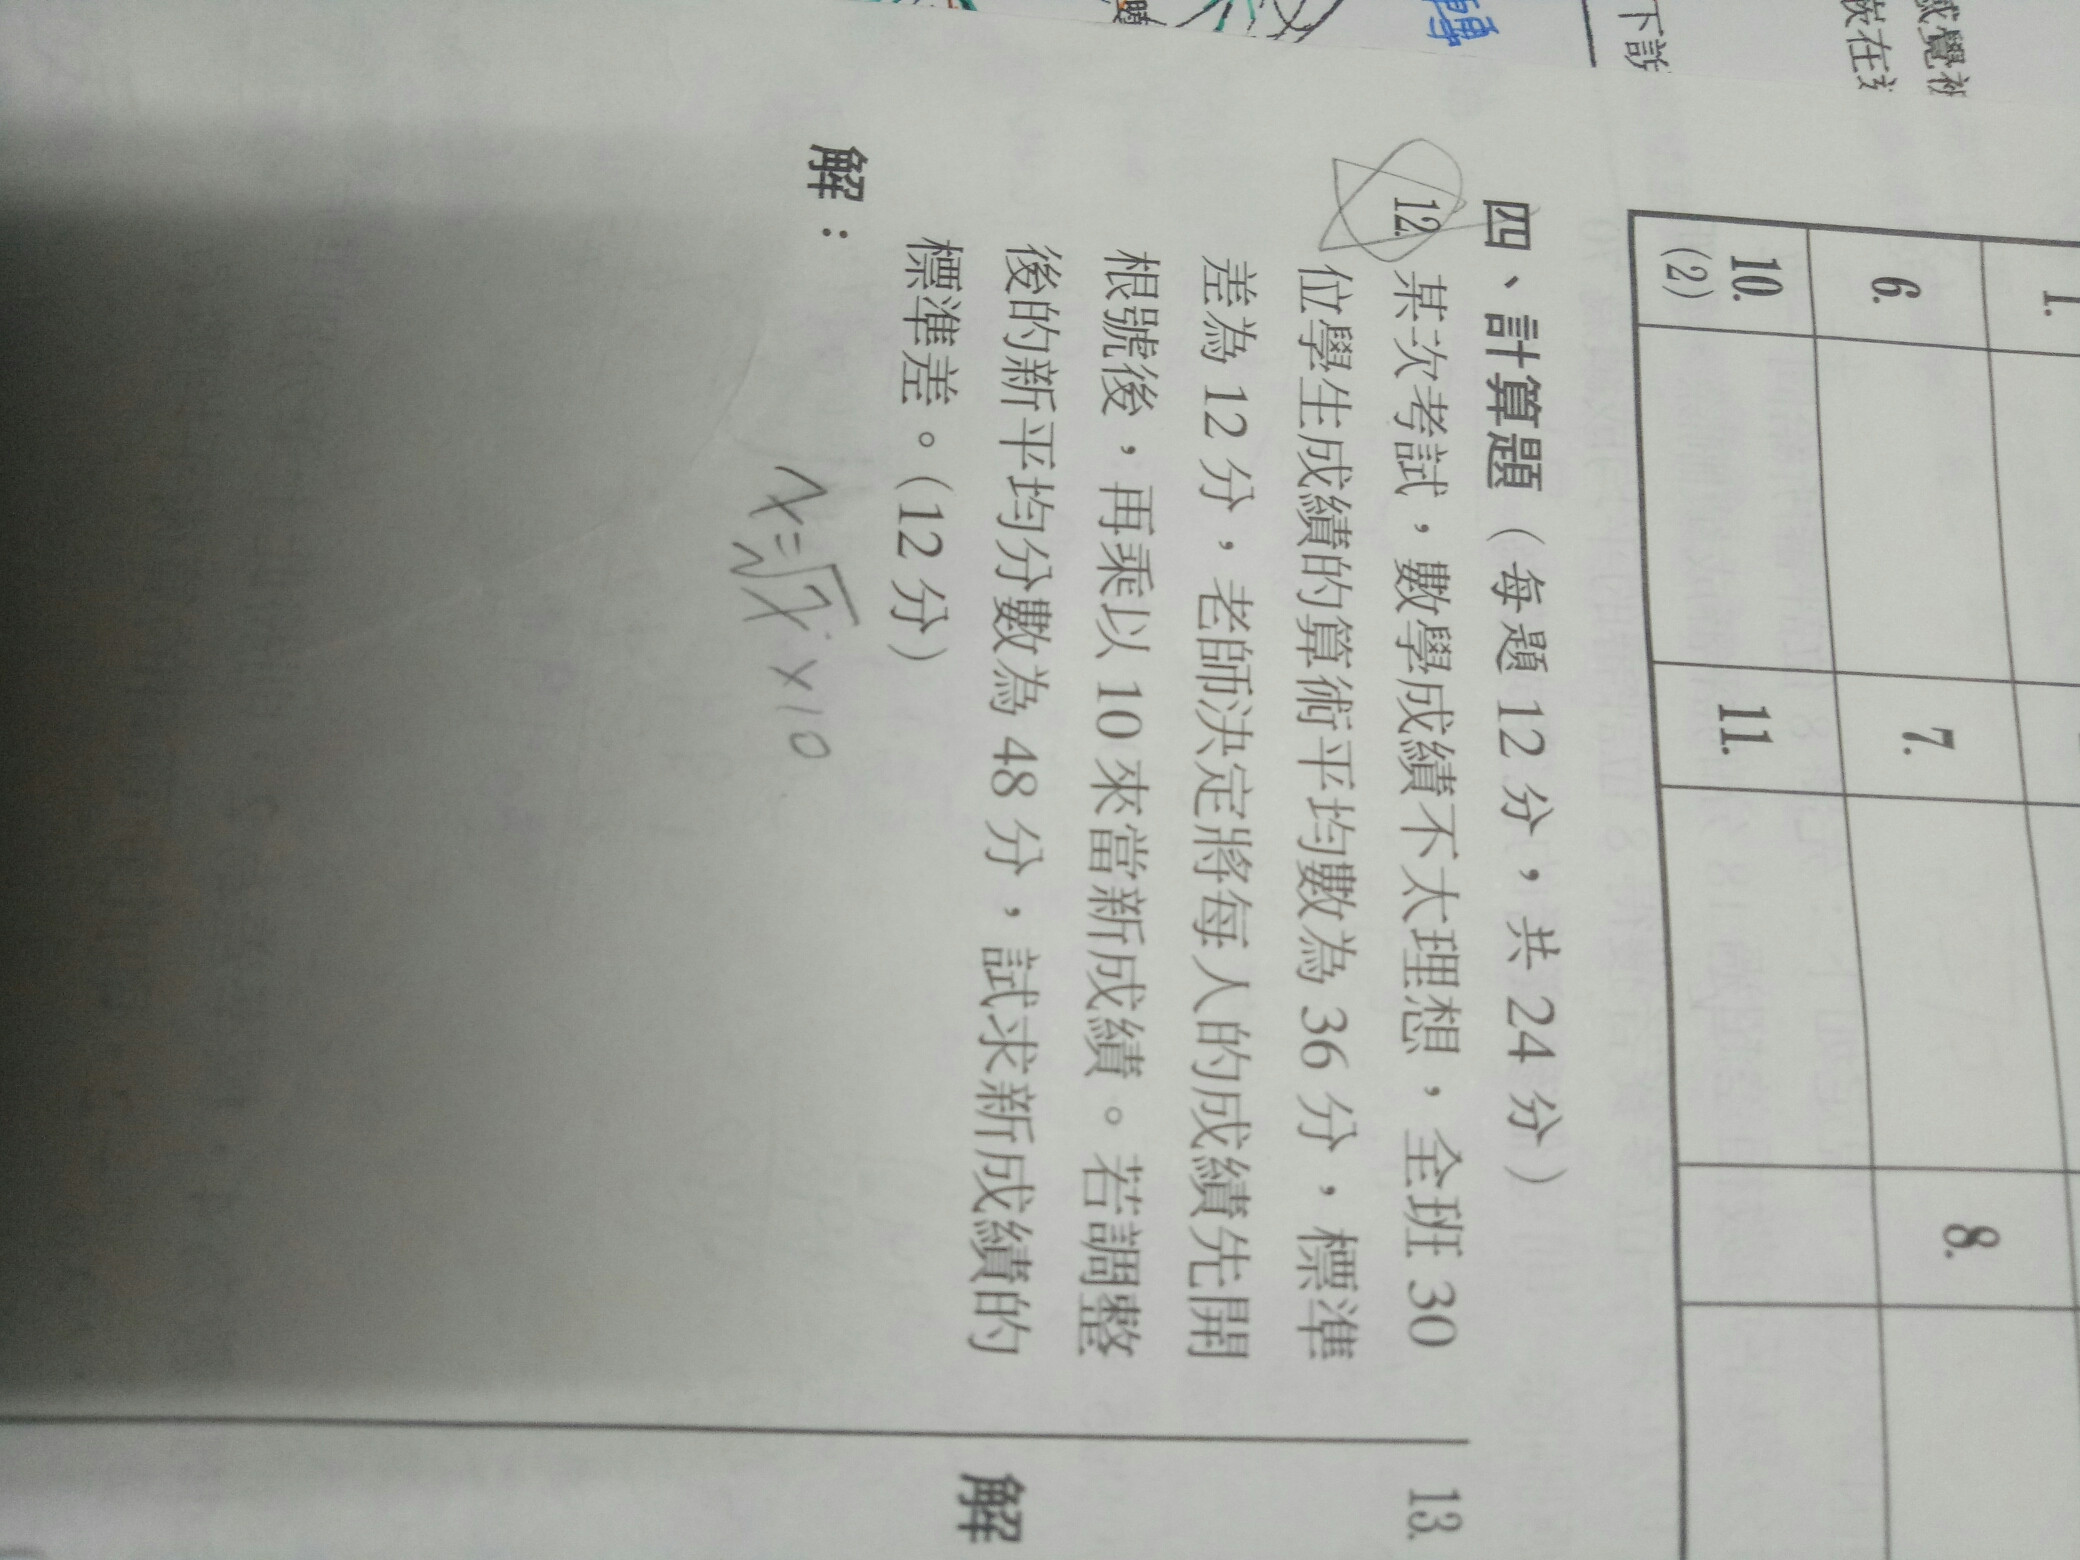 感覺衤
嵌在
下許
1.
6.
7.
8.
10.
(2)
11.
四、計算題（每題 12 分，共 24 分）
12. 某次考試，數學成績不太理想，全班 30
位學生成績的算術平均數為 36 分，標準
差為 12 分，老師決定將每人的成績先開
根號後，再乘以 10 來當新成績。若調整
後的新平均分數為 48 分，試求新成績的
標準差。(12 分)
解：
x=√x ×10
13.
解